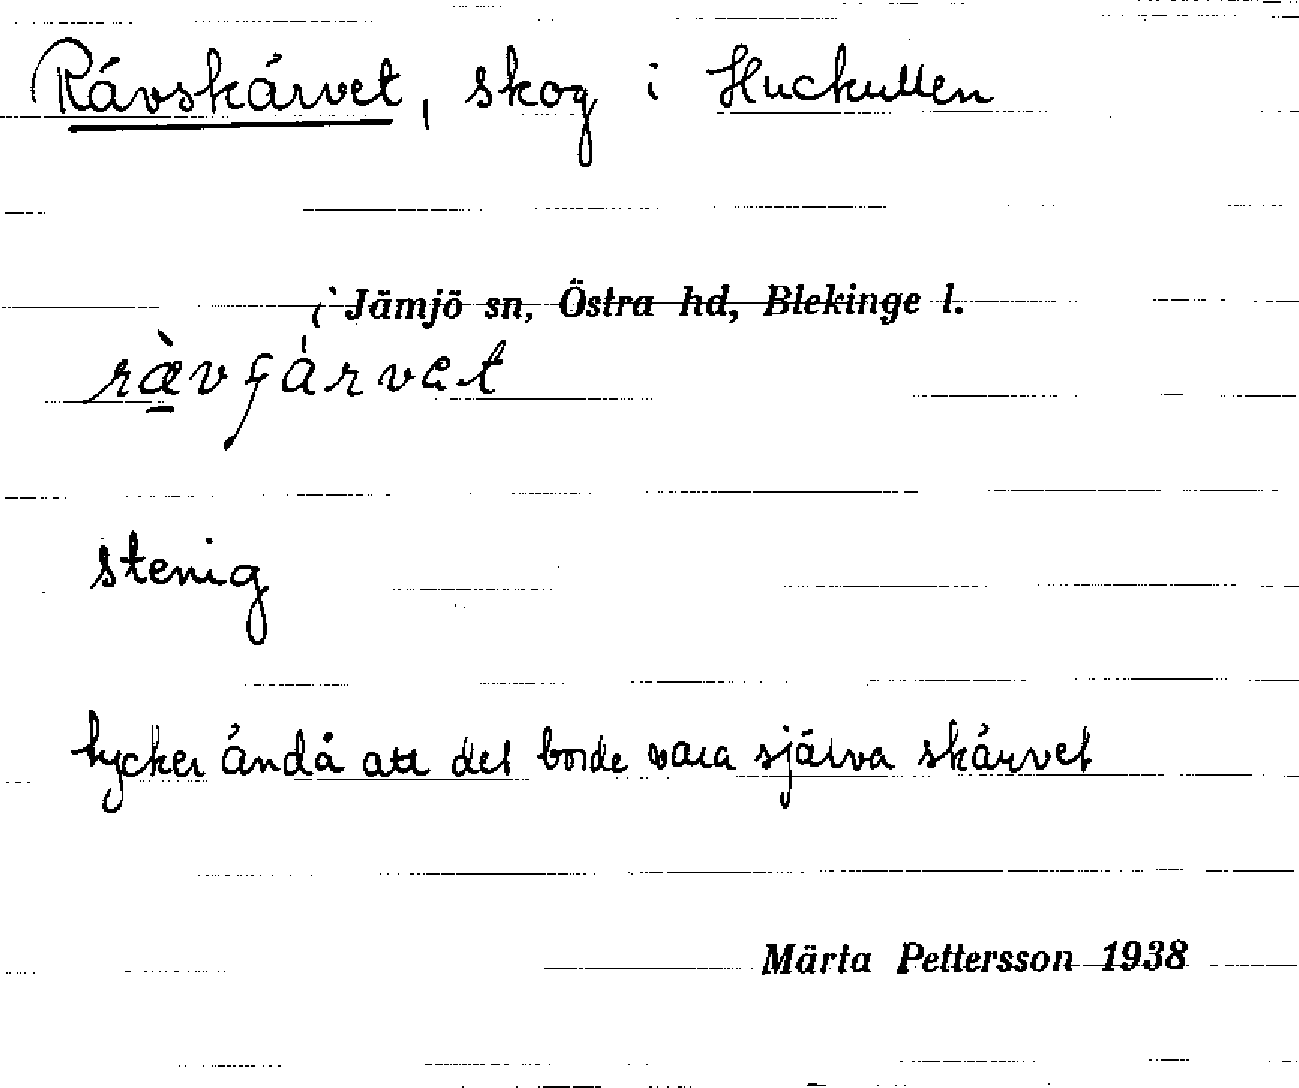 Rävskärvet, skog i Huckullen
i Jämjö sn, Östra hd, Blekinge l.
stenig
tycker ändå att det borde vara själva skärvet
Märta Pettersson 1938